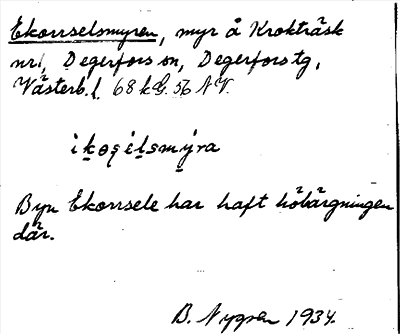 Ekorrselsmyren, myr å Krokträsk
nr1, Degerfors sn, Degerfors tg,
Västerb. l. 68 kG. 56 NV.
Byn Ekorrsele har haft höbärgningen
där.
B. Nygren 1934.